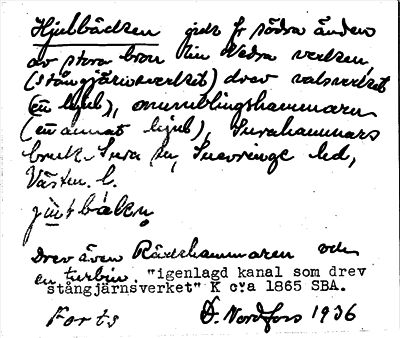 Hjulbäcken gick fr södra änden
av stora bron till Nedra verken,
(stångjärnsverket) drev valsverket
(en hjul), omumblingshammaren
(en annat hjul), Surahammars
bruk. Sura sn, Snevringe hd,
Västm. l.
j̈ɯtbäken.
Drev även Räckshammaren och
en turbin. "igenlagd kanal som drev
stångjärnsverket" K c:a 1865 SBA.
Forts O. Nordfors 1936